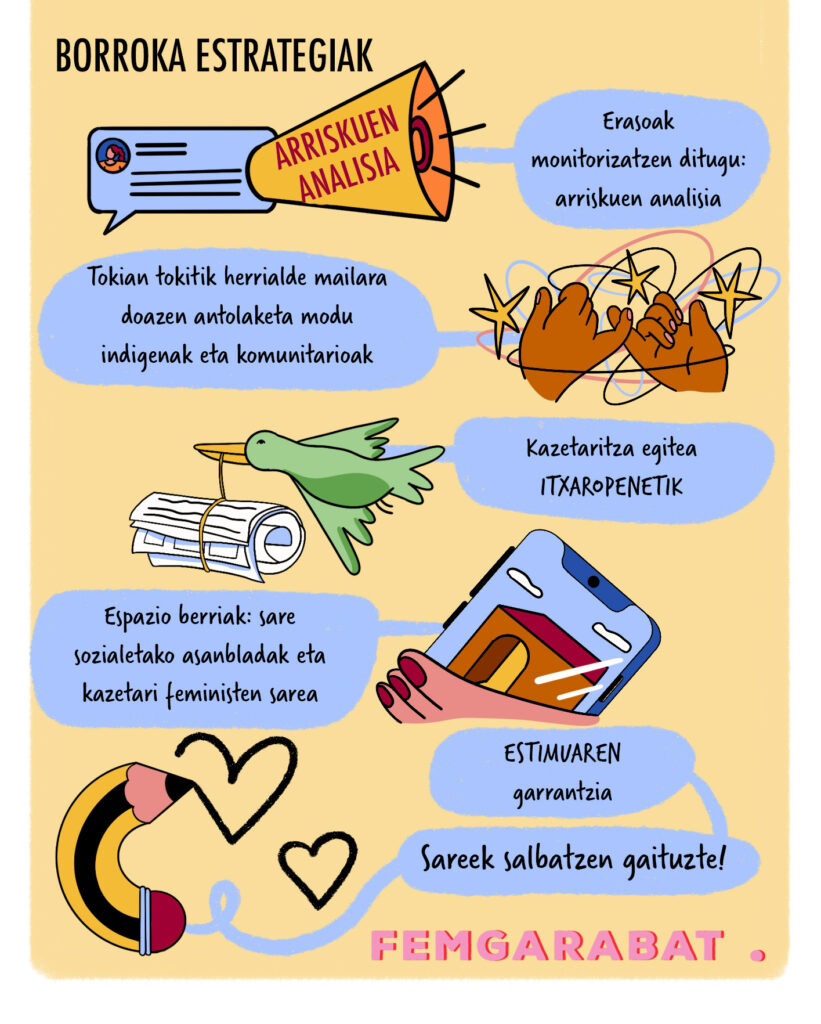 BORROKA ESTRATEGIAK
ARRISKUEN
ANALISIA
Erasoak
monitorizatzen ditugu:
arriskuen analisia
Tokian tokitik herrialde mailara
doazen antolaketa modu
indigenak eta komunitarioak
Kazetaritza egitea
ITXAROPENETIK
Espazio berriak: sare
sozialetako asanbladak eta
kazetari feministen sarea
ESTIMUAREN
garrantzia
Sareek salbatzen gaituzte!
FEMGARABAT .